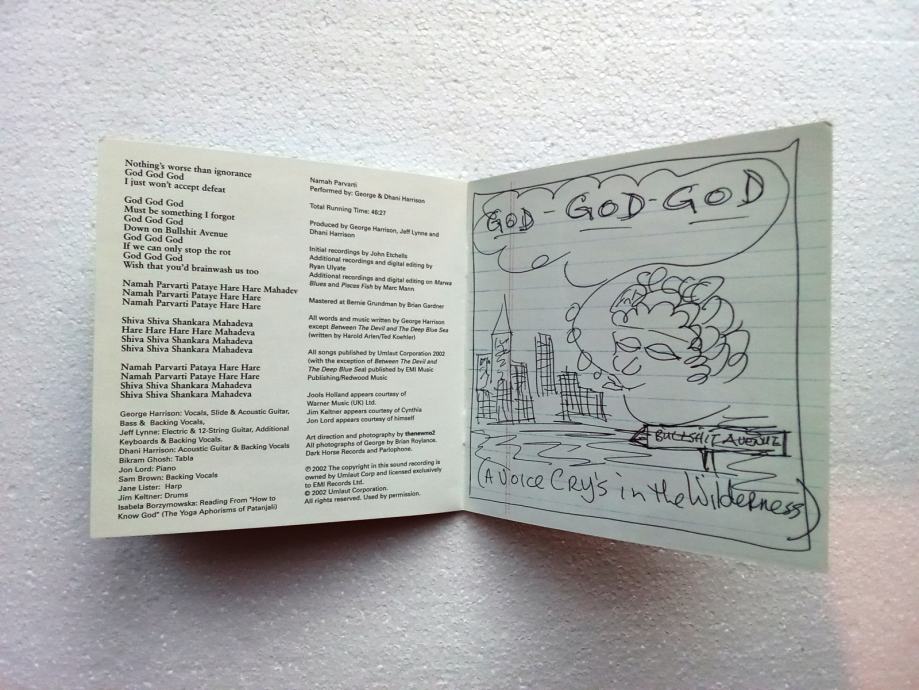 Nothing's worse than ignorance
God God God
I just won't accept defeat
God God God
Must be something I forgot
God God God
Down on Bullshit Avenue
God God God
If we can only stop the rot
God God God
Wish that you'd brainwash us too
Namah Parvarti Pataye Hare Hare Mahadev
Namah Parvarti Pataye Hare Hare
Namah Parvarti Pataye Hare Hare
Shiva Shiva Shankara Mahadeva
Hare Hare Hare Hare Mahadeva
Shiva Shiva Shankara Mahadeva
Shiva Shiva Shankara Mahadeva
Namah Parvarti Pataya Hare Hare
Namah Parvarti Pataye Hare Hare
Shiva Shiva Shankara Mahadeva
Shiva Shiva Shankara Mahadeva
George Harrison: Vocals, Slide & Acoustic Guitar,
Bass & Backing Vocals,
Jeff Lynne: Electric & 12-String Guitar, Additional
Keyboards & Backing Vocals.
Dhani Harrison: Acoustic Guitar & Backing Vocals
Bikram Ghosh: Tabla
Jon Lord: Piano
Sam Brown: Backing Vocals
Jane Lister: Harp
Jim Keltner: Drums
Isabela Borzymowska: Reading From "How to
Know God" (The Yoga Aphorisms of Patanjali)
Namah Parvarti
Performed by: George & Dhani Harrison
Total Running Time: 46:27
Produced by George Harrison, Jeff Lynne and
Dhani Harrison
Initial recordings by John Etchells
Additional recordings and digital editing by
Ryan Ulyate
Additional recordings and digital editing on Marwa
Blues and Pisces Fish by Marc Mann
Mastered at Bernie Grundman by Brian Gardner
All words and music written by George Harrison
except Between The Devil and The Deep Blue Sea
(written by Harold Arlen/Ted Koehler)
All songs published by Umlaut Corporation 2002
(with the exception of Between The Devil and
The Deep Blue Sea) published by EMI Music
Publishing/Redwood Music
Jools Holland appears courtesy of
Warner Music (UK) Ltd.
Jim Keltner appears courtesy of Cynthia
Jon Lord appears courtesy of himself
Art direction and photography by thenewno2
All photographs of George by Brian Roylance.
Dark Horse Records and Parlophone.
℗ 2002 The copyright in this sound recording is
owned by Umlaut Corp and licensed exclusively
to EMI Records Ltd.
© 2002 Umlaut Corporation.
All rights reserved. Used by permission.
GOD - GOD - GOD
BULLSHIT AVENUE
(A Voice Cry's in the Wilderness)